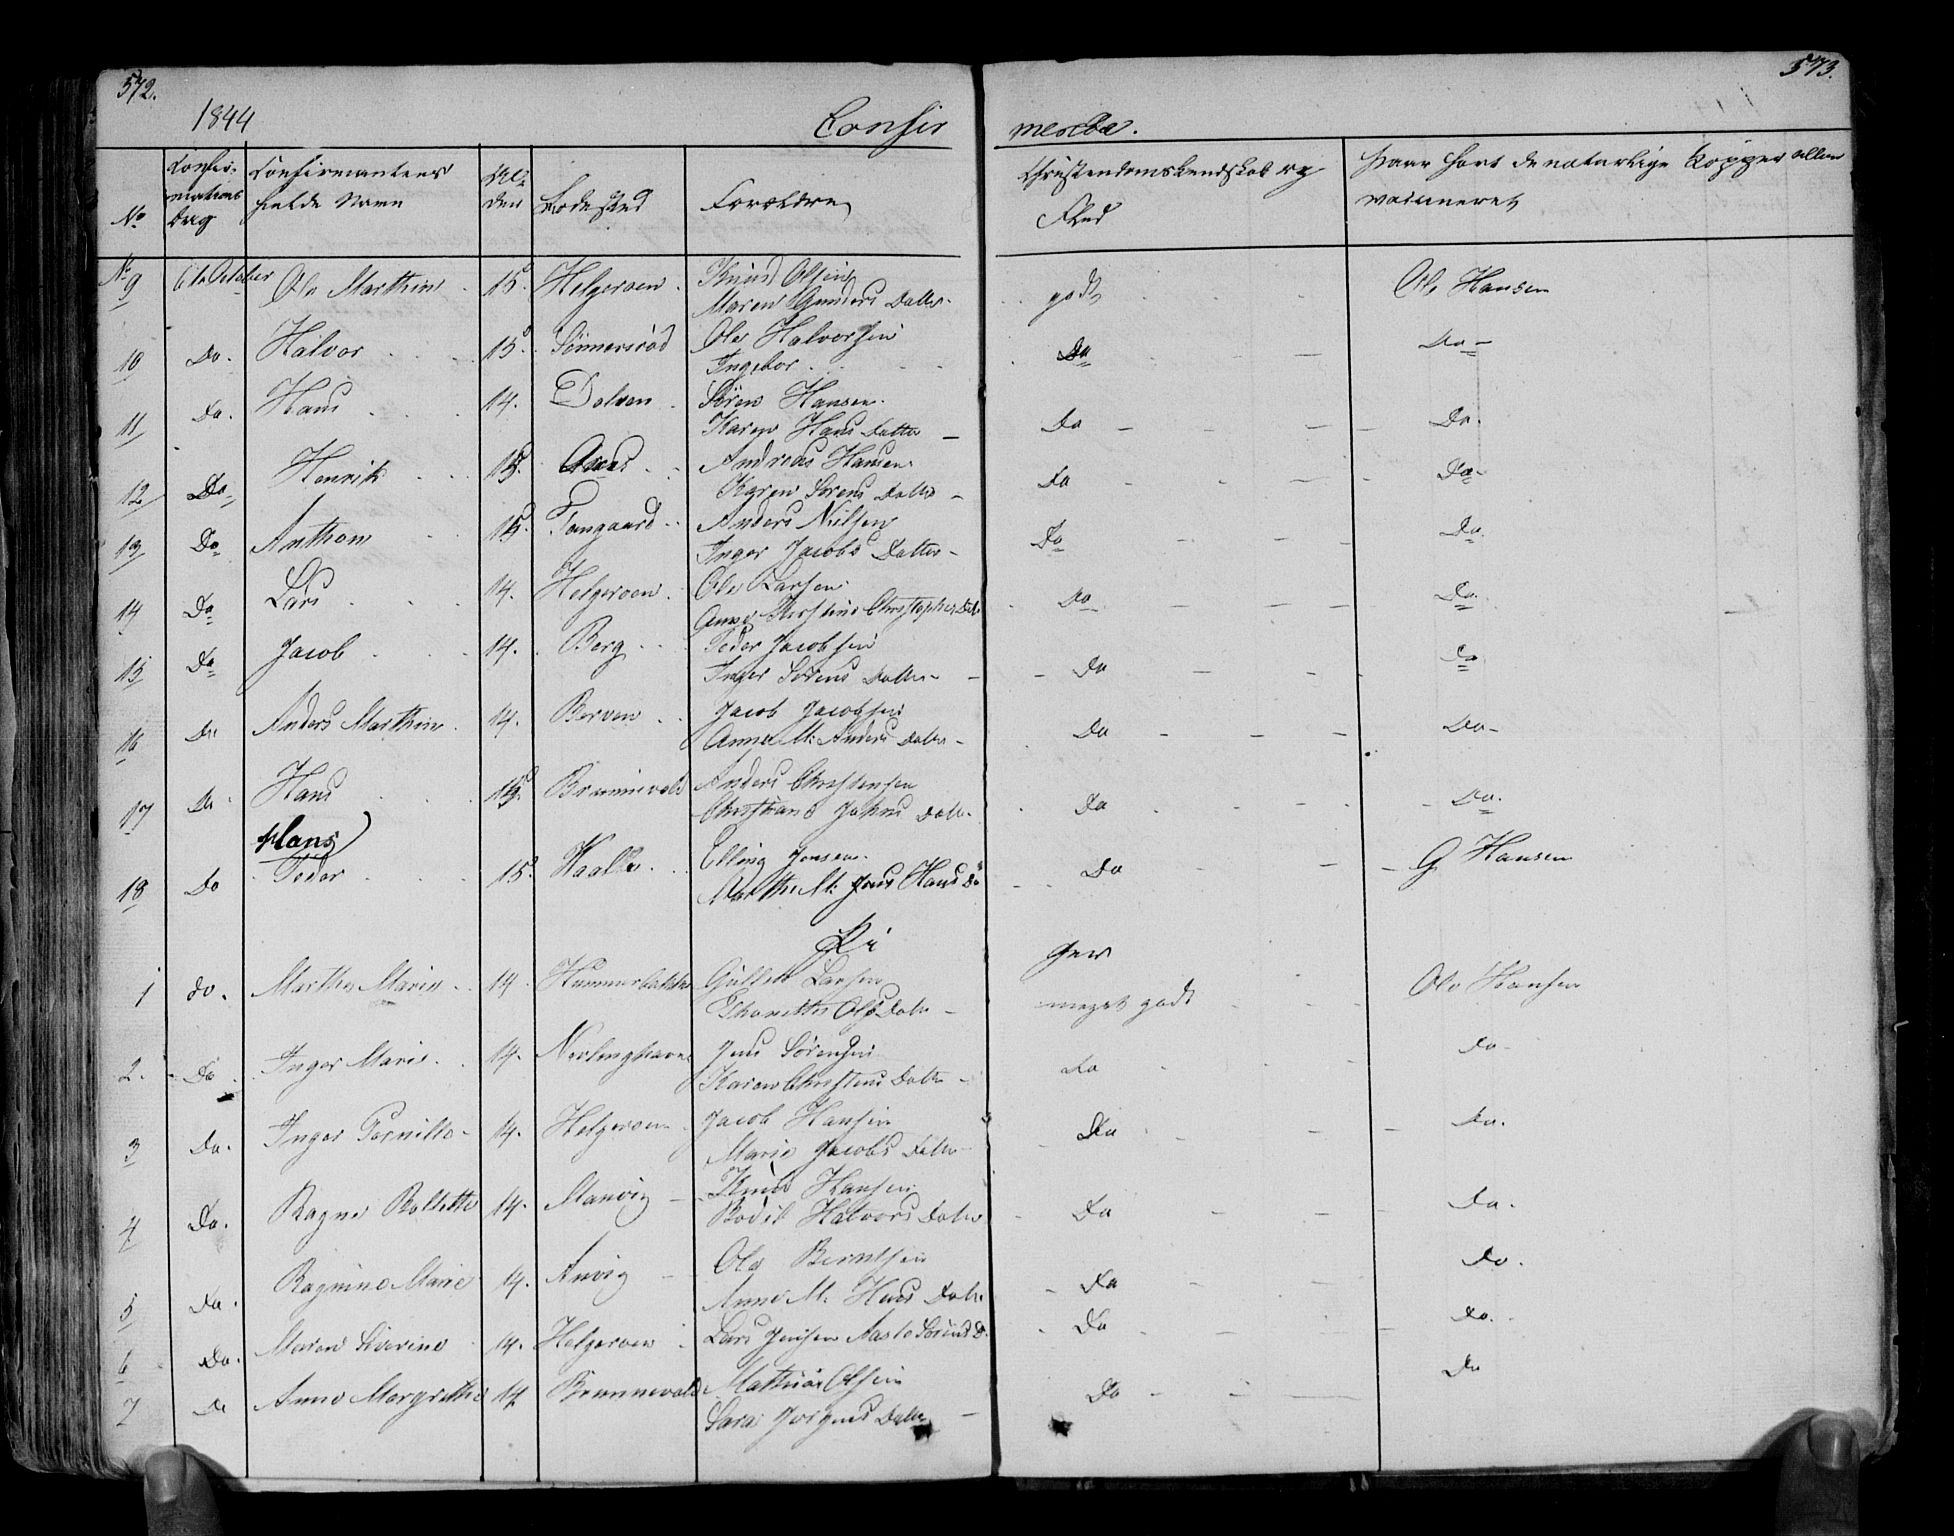 572.
573.
1844
Confir
merede.
No
Confir-
mations
Dag
Confirmantens
fulde Navn
Al-
der
Bopæl
Forældre
Christendomskundskab og
Flid
Haar havt de naturlige Kopper eller
vaccineret
No 9 6te October Ole Marthin 15. Helgeroen Knud Olsen godt Ole Hansen
Maren Gunders Datter
10 Do. Halvor 15. Sønnersrød Ole Halvorsen Do Do
Ingebor
11 Do. Hans 14. Dolven Søren Hansen. Do Do.
Karen Hans Datter
12 Do Henrik 15. Andreas Hansen Do Do
Karen Sørens Datter
13 Do Anthon 15. Fomgaard Anders Nielsen Do Do
Inger Jacobs Datter
14 Do Lars 14. Helgeroen Ole Larsen Do Do
Anne Kirstine Christophers Dat
15 Do Jacob 14. Berg Peder Jacobsen Do Do
Inger Sørens Datter
16 Do Anders Marthin 14. Berven Jacob Jacobsen Do Do
Anne M: Anders Datter
17 Do Hans 15. Brunnevold Anders Christensen Do Do.
Christiane Johns Datter
Hans
18 Do Peder 15. Haalle Elling Jensen. Do G Hansen
Marthe M: Jens Hans D
Pi
ger
1 do. Marthe Marie 14 Hummerbakken Gullek Larsen meget godt Ole Hansen
Thorine Ols Datter
2. Do Inger Marie 14. Nevlunghavn Jens Sørensen do do
Karen Christens Datter
3 Do. Inger Pernille 14. Helgeroen Jacob Hansen Do Do.
Marie Jacobs Datter
4 Do. Ragne Bollette 14. Manvig Knud Hansen Do Do.
Bodil Halvors Datter
5 Do. Ragnine Marie 14. Anvig Ole Berntsen Do Do.
Anne M: Hans Datter
6 Do. Maren Severine 14. Helgeroen Lars Jensen Aaste Sørens D. Do Do.
7 Do Anne Margrethe 14 Brunnevold Mathias Olsen Do Do
Sara Jørgens Datter